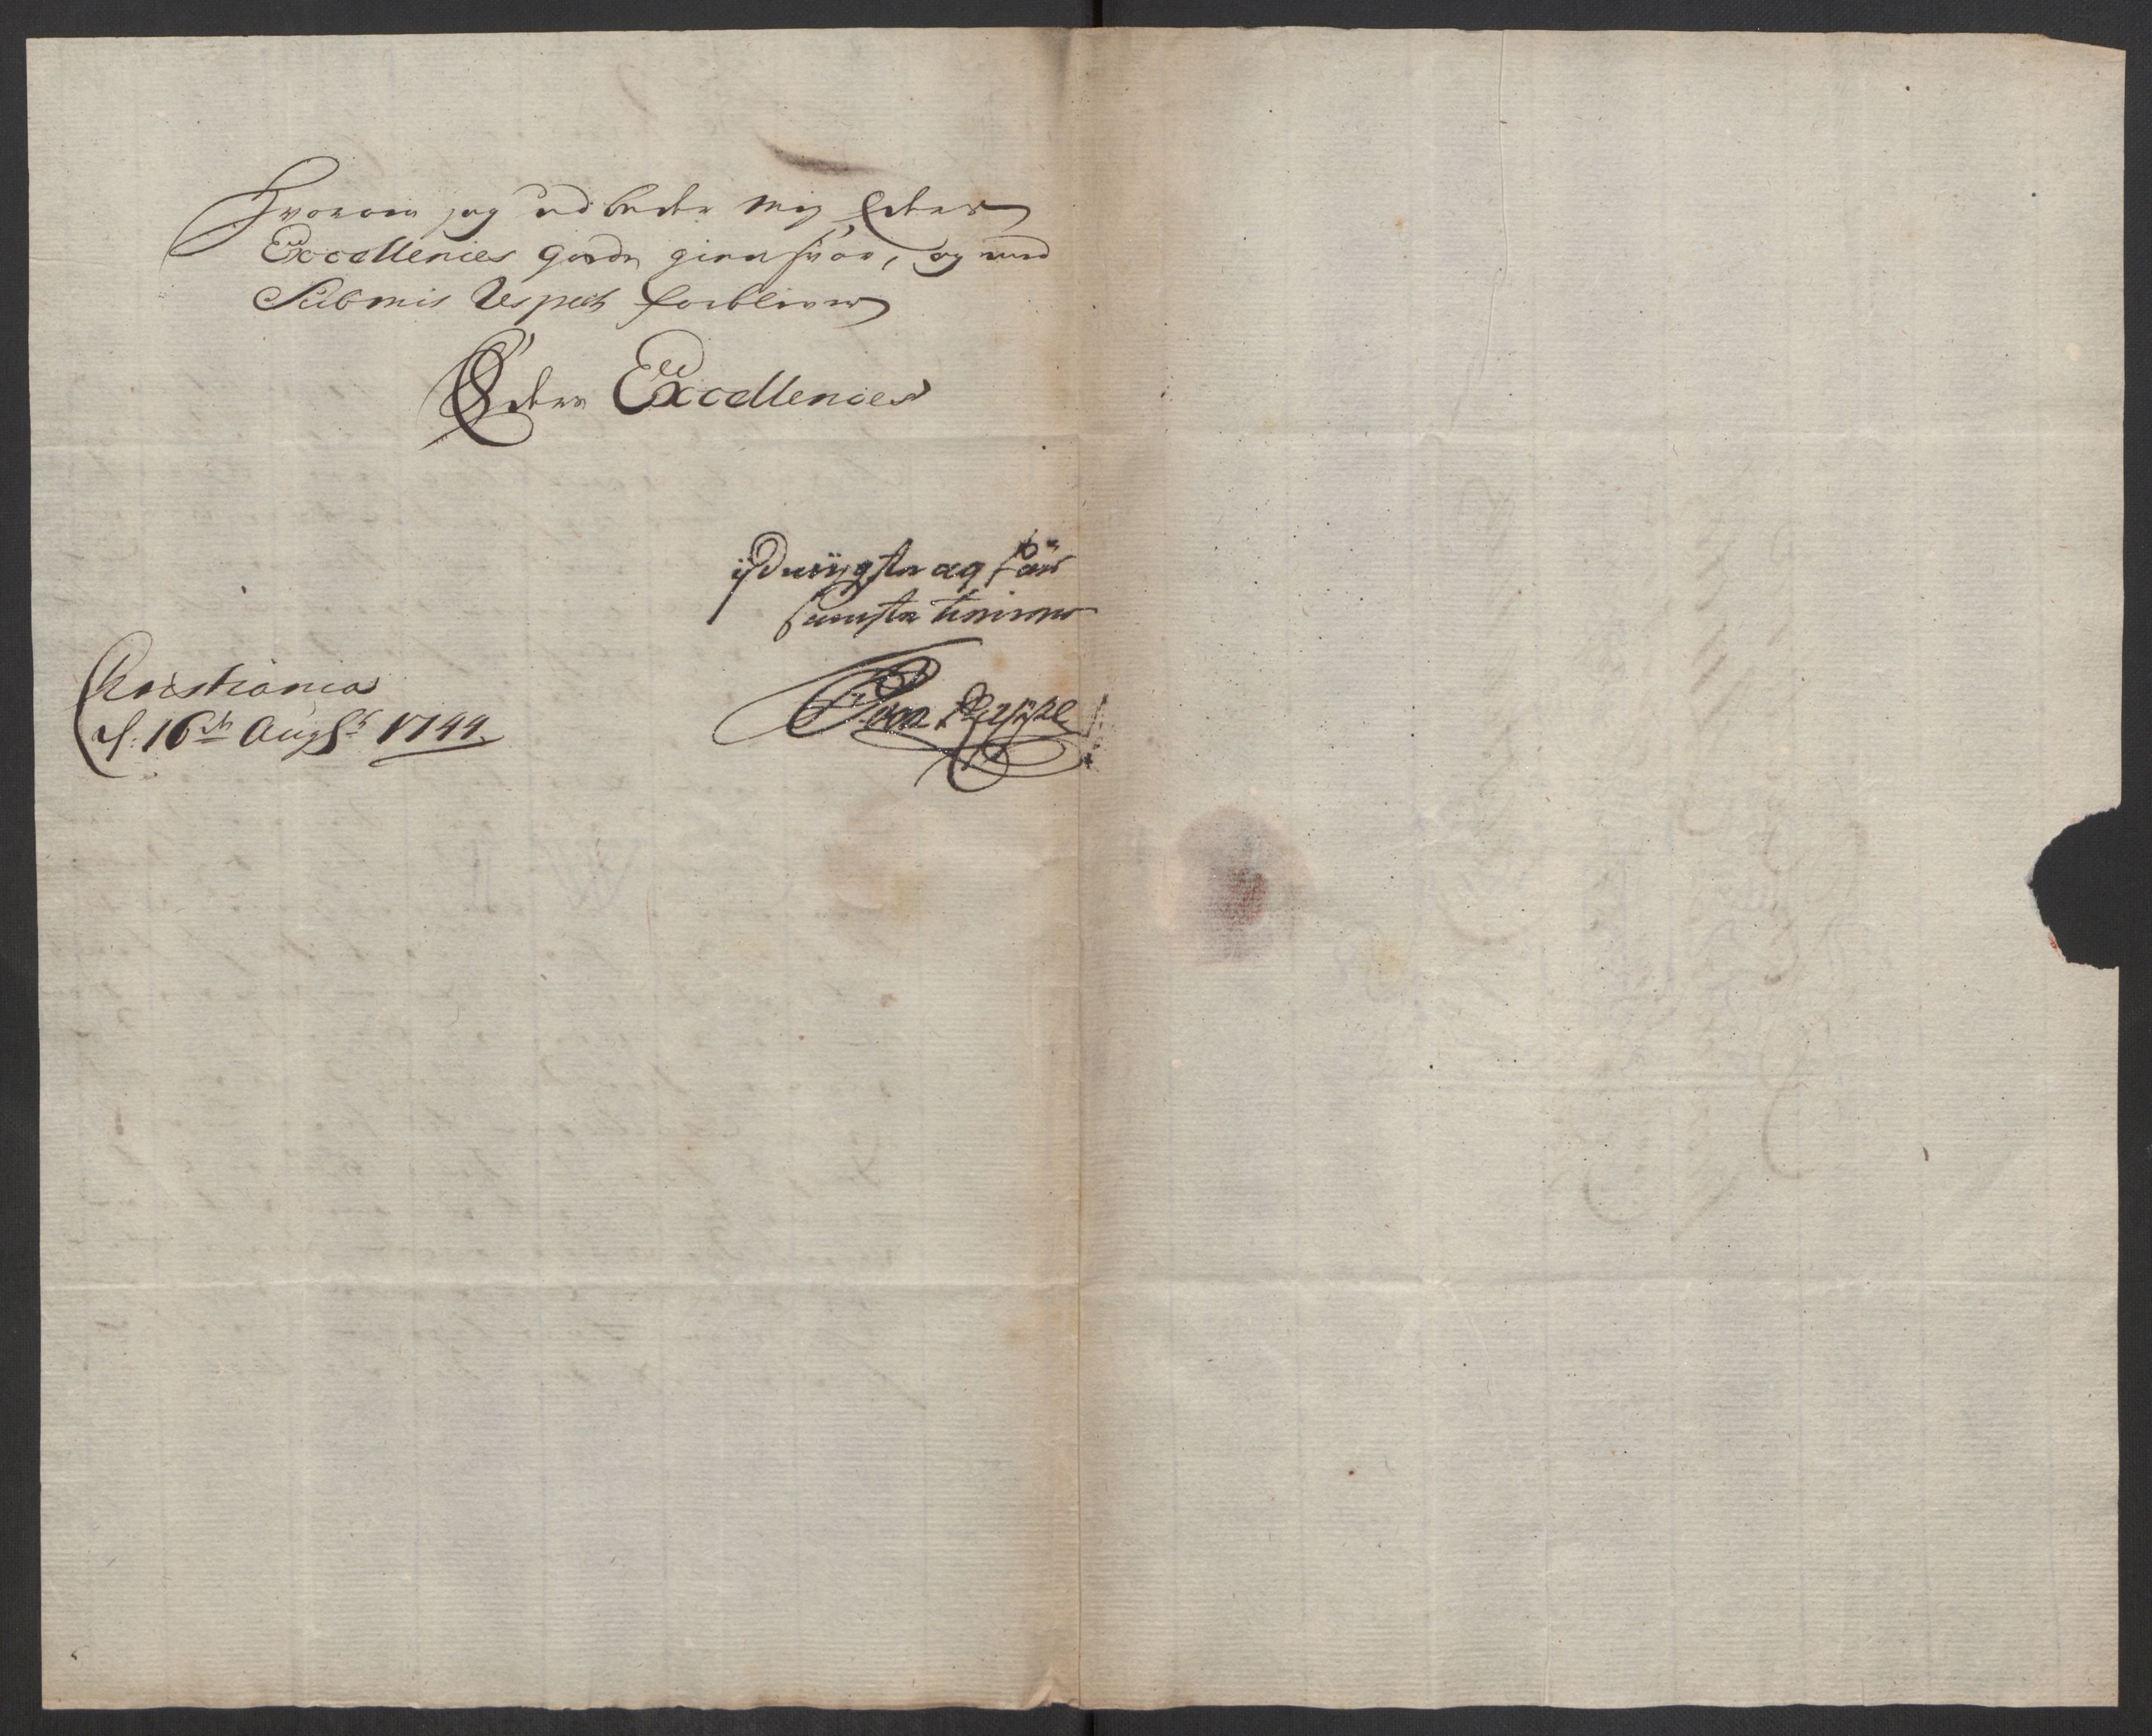 Hvorom jeg udbeder mig Eders
Excellences gode giensvar, og med
Submis Respect forbliver
Eders Excellences
ÿdmÿgste og
tienner
Christiania
d: 16de Augst 1744.